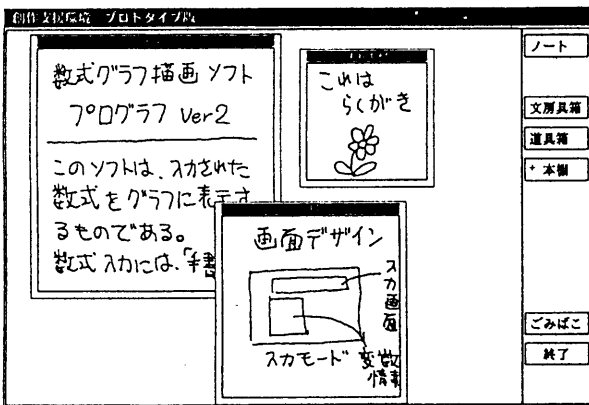 創作支援環境 プロトタイプ版
数式グラフ描画ソフト
プログラフ Ver2
このソフトは、入力された
数式をグラフに表示す
るものである。
数式入力には、「手書
これは
らくがき
画面デザイン
入力画面
入力モード
変数
情報
ノート
文房具箱
道具箱
* 本棚
ごみばこ
終了